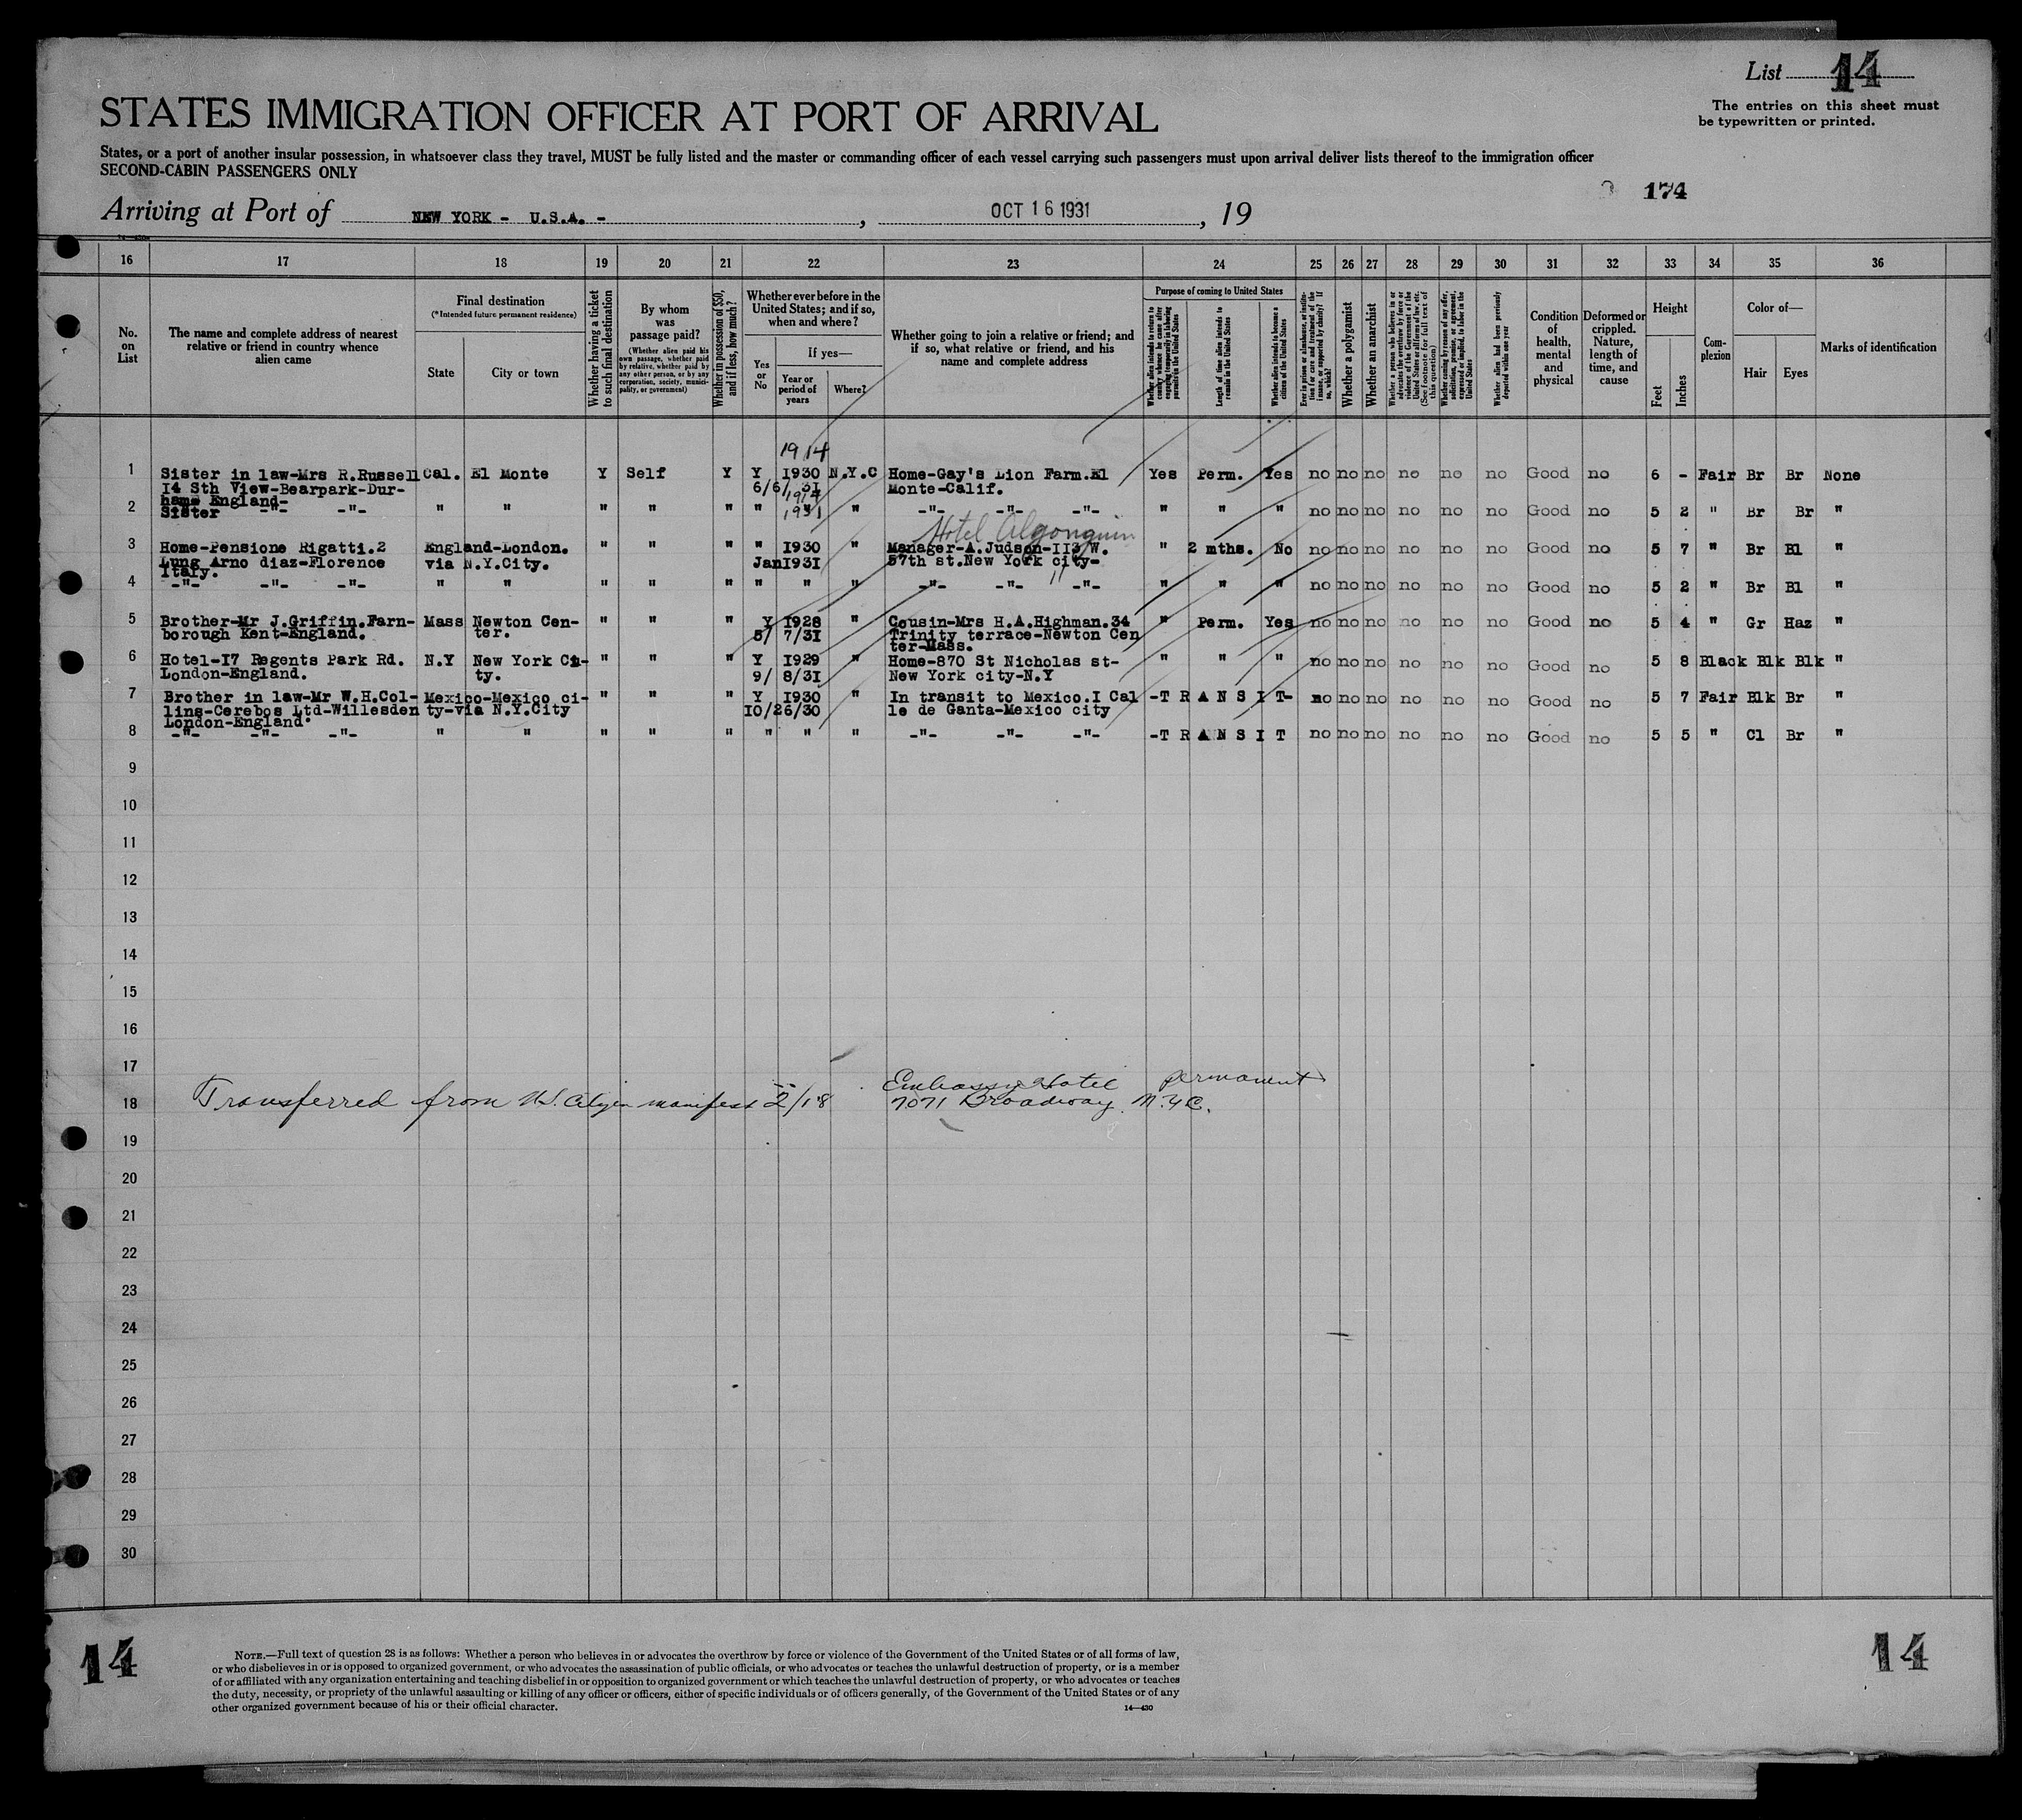 List 14
The entries on this sheet must
be typewritten or printed.
STATES IMMIGRATION OFFICER AT PORT OF ARRIVAL
States, or a port of another insular possession, in whatsoever class they travel, MUST be fully listed and the master or commanding officer of each vessel carrying such passengers must upon arrival deliver lists thereof to the immigration officer
SECOND-CABIN PASSENGERS ONLY
174
Arriving at Port of NEW YORK - U.S.A. - , OCT 16 1931 , 19
16 17 18 19 20 21 22 23 24 25 26 27 28 29 30 31 32 33 34 35 36
No. on List
The name and complete address of nearest relative or friend in country whence alien came
Final destination
(*Intended future permanent residence)
State City or town
Whether having a ticket to such final destination
By whom was passage paid?
(Whether alien paid his own passage, whether paid by relative, whether paid by any other person, or by any corporation, society, municipality, or government)
Whether in possession of $50, and if less, how much?
Whether ever before in the United States; and if so, when and where?
Yes or No
If yes—
Year or period of years
Where?
Whether going to join a relative or friend; and if so, what relative or friend, and his name and complete address
Purpose of coming to United States
Length of time alien intends to remain in the United States
Whether alien intends to become a citizen of the United States
Whether a polygamist
Whether an anarchist
Condition of health, mental and physical
Deformed or crippled. Nature, length of time, and cause
Height
Feet Inches
Com-plexion
Color of—
Hair Eyes
Marks of identification
1914
1 Sister in law-Mrs R.Russell Cal. El Monte Y Self Y Y 1930 N.Y.C Home-Gay's Lion Farm.El Yes Perm. Yes no no no no no no Good no 6 - Fair Br Br None
14 Sth View-Bearpark-Dur- 6/6/31 Monte-Calif.
hams England- 1914
2 Sister -"- -"- " " " " " " 1931 " -"- -"- -"- " " " no no no no no no Good no 5 2 " Br Br "
Hotel Algonquin
3 Home-Pensione Rigatti.2 England-London. " " " " 1930 " Manager-A.Judson-113 W. " 2 mths. No no no no no no no Good no 5 7 " Br Bl "
Lung Arno diaz-Florence via N.Y.City. Jan1931 57th st.New York city-
Italy.
4 -"- -"- -"- " " " " " " " " -"- -"- -"- " " " no no no no no no Good no 5 2 " Br Bl "
5 Brother-Mr J.Griffin.Farn- Mass Newton Cen- " " " Y 1928 " Cousin-Mrs H.A.Highman.34 " Perm. Yes no no no no no no Good no 5 4 " Gr Haz "
borough Kent-England. ter. 5/ 7/31 Trinity terrace-Newton Cen
ter-Mass.
6 Hotel-17 Regents Park Rd. N.Y New York Ci- " " " Y 1929 " Home-870 St Nicholas st- " " " no no no no no no Good no 5 8 Black Blk Blk "
London-England. ty. 9/ 8/31 New York city-N.Y
7 Brother in law-Mr W.H.Col- Mexico-Mexico ci- " " " Y 1930 " In transit to Mexico.I Cal -TRANSIT- no no no no no no Good no 5 7 Fair Blk Br "
lins-Cerebos Ltd-Willesden ty-via N.Y.City 10/26/30 le de Ganta-Mexico city
London-England.
8 -"- -"- -"- " " " " " " " " -"- -"- -"- -TRANSIT no no no no no no Good no 5 5 " Cl Br "
9
10
11
12
13
14
15
16
17
Embassy Hotel permanent
18 Transferred from U.S. Citizen manifest 2/18 7071 Broadway N.Y.C.
19
20
21
22
23
24
25
26
27
28
29
30
14
14
NOTE.—Full text of question 28 is as follows: Whether a person who believes in or advocates the overthrow by force or violence of the Government of the United States or of all forms of law,
or who disbelieves in or is opposed to organized government, or who advocates the assassination of public officials, or who advocates or teaches the unlawful destruction of property, or is a member
of or affiliated with any organization entertaining and teaching disbelief in or opposition to organized government or which teaches the unlawful destruction of property, or who advocates or teaches
the duty, necessity, or propriety of the unlawful assaulting or killing of any officer or officers, either of specific individuals or of officers generally, of the Government of the United States or of any
other organized government because of his or their official character.
14—430